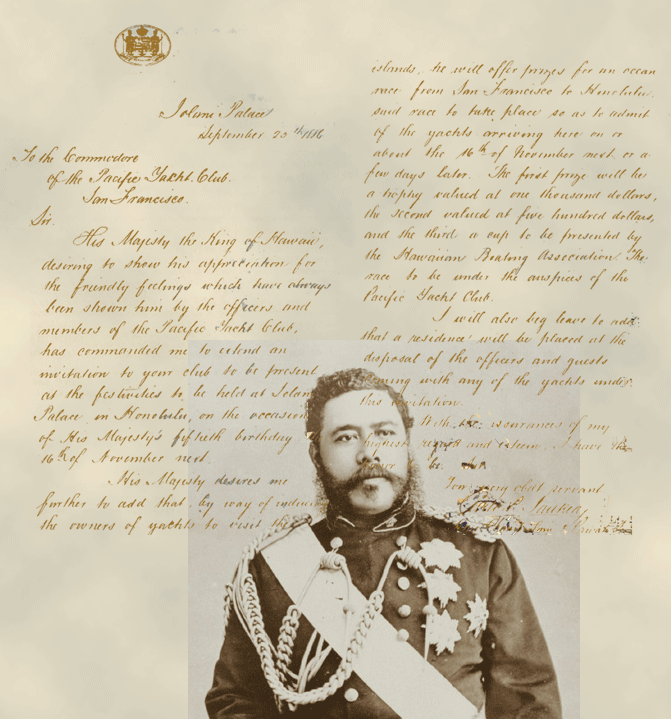 Iolani Palace
September 20th 1886
To the Commodore
of the Pacific Yacht Club.
San Francisco.
Sir.
His Majesty the King of Hawaii,
desiring to show his appreciation for
the friendly feelings which have always
been shown him by the officers and
members of the Pacific Yacht Club,
has commanded me to extend an
invitation to your club to be present
at the festivities to be held at Iolani
Palace in Honolulu, on the occasion
of His Majesty's fiftieth birthday
16th of November next.
His Majesty desires me
further to add that by way of
the owners of yachts to visit the
islands, he will offer prizes for an ocean
race from San Francisco to Honolulu.
said race to take place so as to admit
of the yachts arriving here on or
about the 16th of November next. or a
few days later. The first prize will be
a trophy valued at one thousand dollars,
the second valued at five hundred dollars,
and the third a cup to be presented by
the Hawaiian Boating Association. The
race to be under the auspices of the
Pacific Yacht Club.
I will also beg leave to add
that a residence will be placed at the
disposal of the officers and guests
coming with any of the yachts under
this invitation.
With the assurances of my
highest regard and esteem, I have the
be. Sir
Your very obdt servant